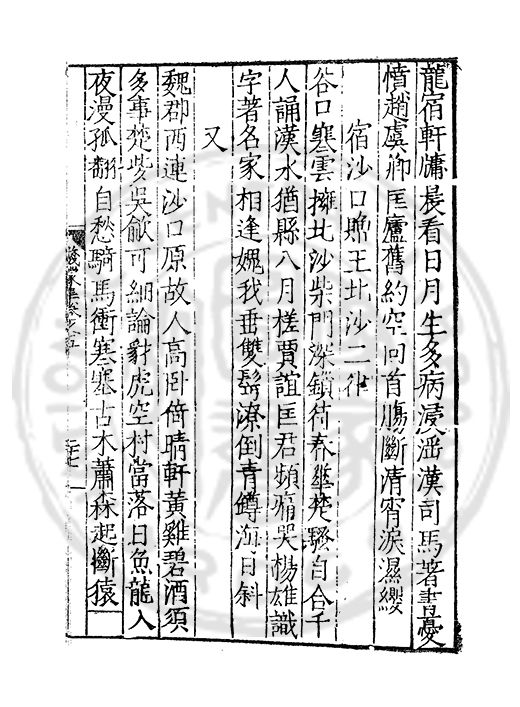 龍宿軒牖晨看日月生多病浸滛漢司馬著書憂
憤趙虞卿匡廬舊約空囘首膓斷清宵淚濕纓
宿沙口贈王北沙二律
谷口塞雲擁北沙柴門深鎖待春華楚騷自合千
人誦漢水猶縣八月槎賈誼匡君頻痛哭楊雄識
字著名家相逢媿我垂雙鬂潦倒青鐏海日斜
又
魏郡西連沙口原故人高卧倚晴軒黃雞碧酒須
多事楚些吳歈可細論豺虎空村當落日魚龍入
夜漫孤翻自愁騎馬衝寒塞古木蕭森起斷猿